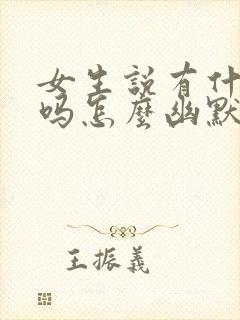 女生説有什
吗怎麼幽默
王振義